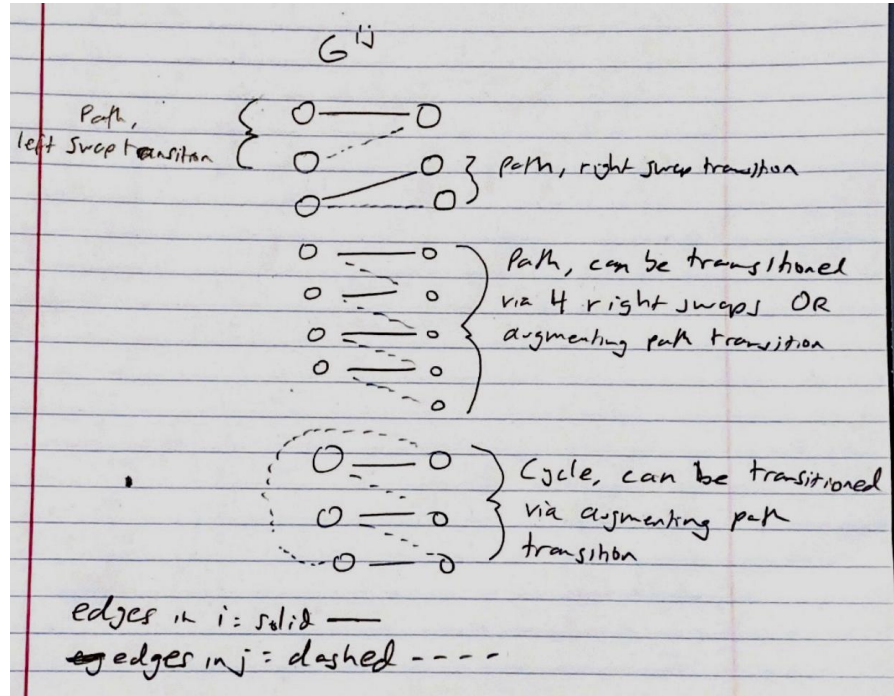 G^ij
Path,
left swap transition
path, right swap transition
Path, can be transitioned
via 4 right swaps OR
augmenting path transition
Cycle, can be transitioned
via augmenting path
transition
edges in i = solid —
edges in j = dashed - - - -